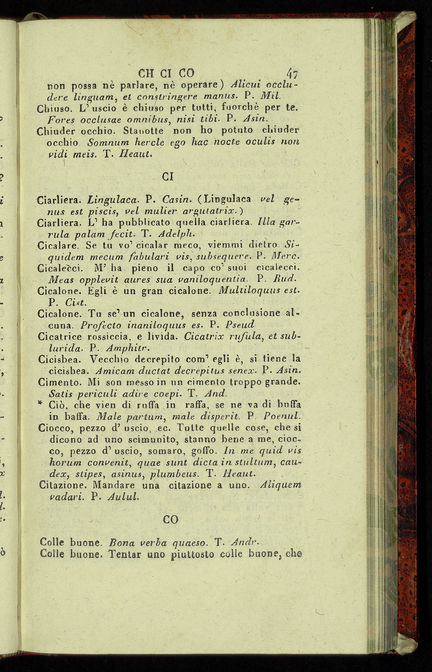 CH CI CO 47
non possa nè parlare, nè operare) Alicui occlu-
dere linguam, et constringere manus. P. Mil.
Chiuso. L'uscio è chiuso per tutti, fuorchè per te.
Fores occlusae omnibus, nisi tibi. P. Asin.
Chiuder occhio. Stanotte non ho potuto chiuder
occhio Somnum hercle ego hac nocte oculis non
vidi meis. T. Heaut.
CI
Ciarliera. Lingulaca. P. Casin. (Lingulaca vel ge-
nus est piscis, vel mulier argutatrix.)
Ciarliera. L'ha pubblicato quella ciarliera. Illa gar-
rula palam fecit. T. Adelph.
Cicalare. Se tu vo' cicalar meco, viemmi dietro Si-
quidem mecum fabulari vis, subsequere. P. Merc.
Cicalecci. M'ha pieno il capo co' suoi cicalecci.
Meas opplevit aures sua vaniloquentia. P. Rud.
Cicalone. Egli è un gran cicalone. Multiloquus est.
P. Cist.
Cicalone. Tu se' un cicalone, senza conclusione al-
cuna. Profecto inaniloquus es. P. Pseud
Cicatrice rossiccia, e livida. Cicatrix rufula, et sub-
lurida. P. Amphitr.
Cicisbea. Vecchio decrepito com' egli è, si tiene la
cicisbea. Amicam ductat decrepitus senex. P. Asin.
Cimento. Mi son messo in un cimento troppo grande.
Satis periculi adire coepi. T. And.
* Ciò, che vien di ruffa in raffa, se ne va di buffa
in baffa. Male partum, male disperit. P. Poenul.
Ciocco, pezzo d'uscio, ec. Tutte quelle cose, che si
dicono ad uno scimunito, stanno bene a me, cioc-
co, pezzo d'uscio, somaro, goffo. In me quid vis
horum convenit, quae sunt dicta in stultum, cau-
dex, stipes, asinus, plumbeus. T. Heaut.
Citazione. Mandare una citazione a uno. Aliquem
vadari. P. Aulul.
CO
Colle buone. Bona verba quaeso. T. Andr.
Colle buone. Tentar uno piuttosto colle buone, che